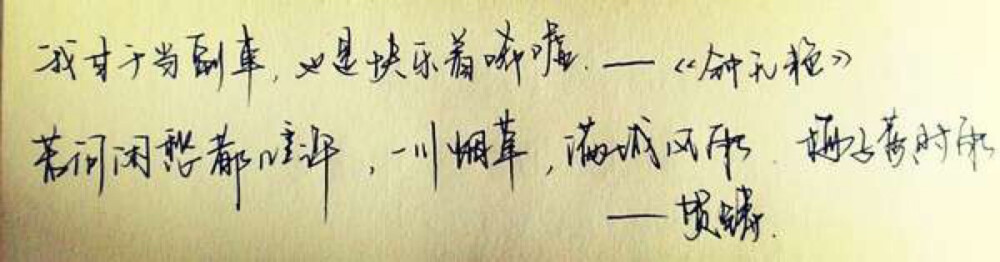 我甘于当副车，也是快乐着唏嘘.—《钟无艳》
若问闲愁都几许，一川烟草，满城风雨.梅子黄时雨
—贺铸.